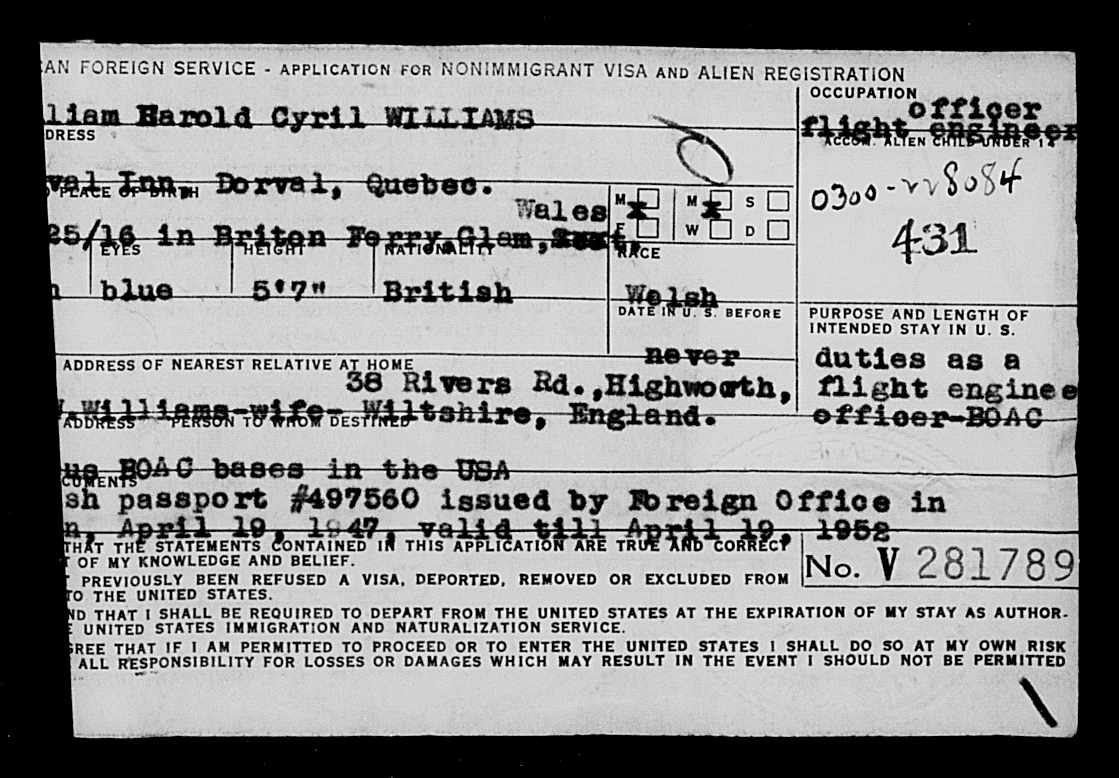 AN FOREIGN SERVICE - APPLICATION FOR NONIMMIGRANT VISA AND ALIEN REGISTRATION
OCCUPATION
officer
liam Harold Cyril WILLIAMS
flight engineer
DRESS
ACCOM. ALIEN CHILD UNDER 14
val Inn, Dorval, Quebec.
PLACE OF BIRTH
0300-228084
Wales
M X M X S
25/16 in Briton Ferry, Glam,
F W D
431
EYES HEIGHT NATIONALITY
RACE
blue 5'7" British
Welsh
DATE IN U. S. BEFORE
PURPOSE AND LENGTH OF
INTENDED STAY IN U. S.
never
ADDRESS OF NEAREST RELATIVE AT HOME
duties as a
38 Rivers Rd., Highworth,
flight enginee
W.Williams-wife- Wiltshire, England.
officer-BOAC
ADDRESS PERSON TO WHOM DESTINED
us BOAC bases in the USA
CUMENTS
sh passport #497560 issued by Foreign Office in
n, April 19, 1947, valid till April 19, 1952
THAT THE STATEMENTS CONTAINED IN THIS APPLICATION ARE TRUE AND CORRECT
OF MY KNOWLEDGE AND BELIEF.
No. V 281789
PREVIOUSLY BEEN REFUSED A VISA, DEPORTED, REMOVED OR EXCLUDED FROM
TO THE UNITED STATES.
ND THAT I SHALL BE REQUIRED TO DEPART FROM THE UNITED STATES AT THE EXPIRATION OF MY STAY AS AUTHOR-
E UNITED STATES IMMIGRATION AND NATURALIZATION SERVICE.
GREE THAT IF I AM PERMITTED TO PROCEED OR TO ENTER THE UNITED STATES I SHALL DO SO AT MY OWN RISK
ALL RESPONSIBILITY FOR LOSSES OR DAMAGES WHICH MAY RESULT IN THE EVENT I SHOULD NOT BE PERMITTED